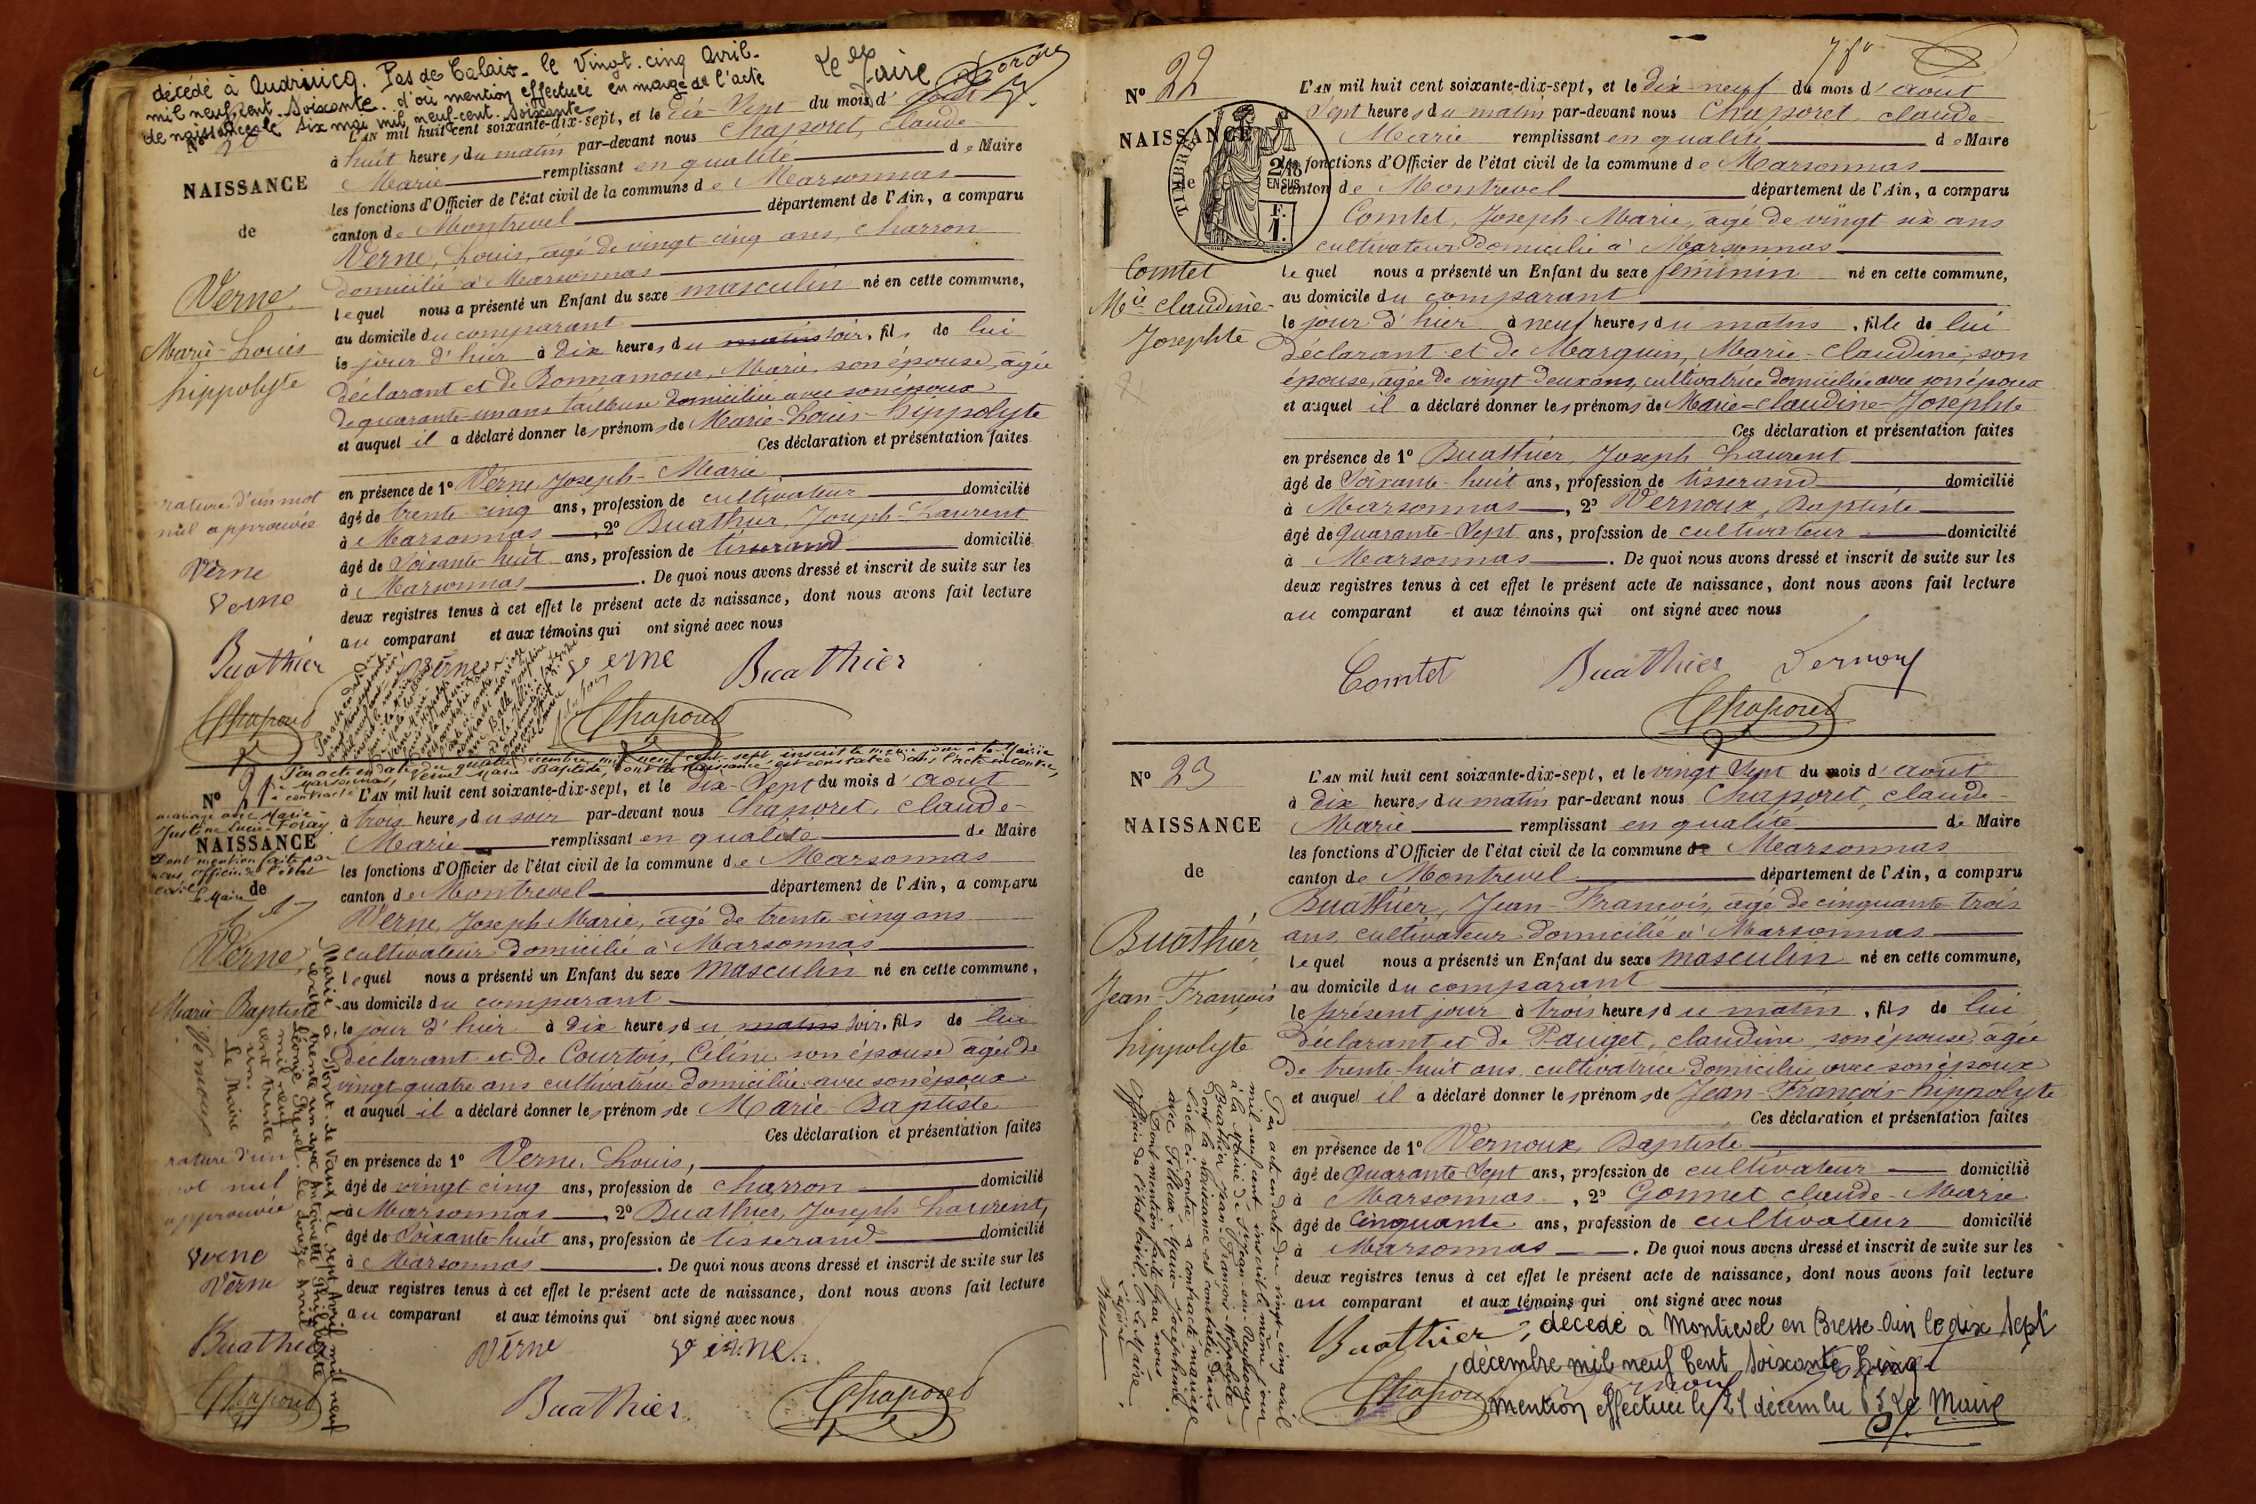 décédé à Audruicq. Pas de Calais. le Vingt. cinq Avril.
mil neuf. cent. soixante. d'où mention effectuée en marge de l'acte
de naissance le six mai mil neuf. cent. soixante
Le Maire
N° 20
NAISSANCE
de
Verne
Marie-Louis
hippolyte
rature d'un mot
nul approuvée
Verne
Verne
Buathier
Chaporet
L'AN mil huit cent soixante-dix-sept, et le Dix-Sept du mois d'août
à huit heures du matin par-devant nous Chaporet, Claude-
Marie remplissant en qualité de Maire
les fonctions d'Officier de l'état civil de la commune de Marsonnas
canton de Montrevel département de l'Ain, a comparu
Verne, Louis, âgé de vingt cinq ans, charron
domicilié à Marsonnas
lequel nous a présenté un Enfant du sexe masculin né en cette commune,
au domicile du comparant
le jour d'hier à dix heures du matin soir, fils de lui
déclarant et de Bonnamour, Marie, son épouse, agée
de quarante-un ans tailleuse domiciliée avec son époux
et auquel il a déclaré donner les prénoms de Marie-Louis-hippolyte
Ces déclaration et présentation faites
en présence de 1° Verne Joseph-Marie
âgé de trente cinq ans, profession de cultivateur domicilié
à Marsonnas, 2° Buathier, Joseph-Laurent
âgé de Soixante-huit ans, profession de tisserand domicilié
à Marsonnas. De quoi nous avons dressé et inscrit de suite sur les
deux registres tenus à cet effet le présent acte de naissance, dont nous avons fait lecture
au comparant et aux témoins qui ont signé avec nous
Verne Verne Buathier
Chaporet
Par acte en date du quatre décembre mil neuf cent sept inscrit le même jour à la Mairie
de Marsonnas, Verne Marie-Baptiste, dont la naissance est constatée dans l'acte ci-contre,
a contracté
mariage avec Marie-
Justine Lucie Foray
Dont mention faite par
nous, officier de l'état
civil
le Maire
N° 21
NAISSANCE
de
Verne
Marie-Baptiste
Marié à Pont de Vaux le sept Avril mil neuf
cent trente un avec Antoinette Philiberte
Léonie Revel. le douze Avril
mil neuf
cent trente
un
le Maire
rature d'un
mot nul
approuvée
Verne
Verne
Buathier
Chaporet
L'AN mil huit cent soixante-dix-sept, et le Dix-Sept du mois d'août
à trois heures du soir par-devant nous Chaporet, Claude-
Marie remplissant en qualité de Maire
les fonctions d'Officier de l'état civil de la commune de Marsonnas
canton de Montrevel département de l'Ain, a comparu
Verne, Joseph Marie, âgé de trente cinq ans
cultivateur domicilié à Marsonnas
lequel nous a présenté un Enfant du sexe masculin né en cette commune,
au domicile du comparant
le jour d'hier à dix heures du matin soir, fils de lui
déclarant et de Courtois, Céline son épouse agée de
vingt quatre ans cultivatrice domiciliée avec son époux
et auquel il a déclaré donner les prénoms de Marie-Baptiste
Ces déclaration et présentation faites
en présence de 1° Verne, Louis,
âgé de vingt-cinq ans, profession de charron domicilié
à Marsonnas, 2° Buathier, Joseph Laurent,
âgé de Soixante-huit ans, profession de tisserand domicilié
à Marsonnas. De quoi nous avons dressé et inscrit de suite sur les
deux registres tenus à cet effet le présent acte de naissance, dont nous avons fait lecture
au comparant et aux témoins qui ont signé avec nous
Verne Verne
Buathier Chaporet
N° 22
NAISSANCE
de
TIMBRE
2/10
EN SUS
F.
1.
Comtet
Mie claudine-
Josephte
L'AN mil huit cent soixante-dix-sept, et le dix-neuf du mois d'août
Sept heures du matin par-devant nous Chaporet, claude-
Marie remplissant en qualité de Maire
les fonctions d'Officier de l'état civil de la commune de Marsonnas
canton de Montrevel département de l'Ain, a comparu
Comtet, Joseph-Marie, âgé de vingt six ans
cultivateur domicilié à Marsonnas
lequel nous a présenté un Enfant du sexe féminin né en cette commune,
au domicile du comparant
le jour d'hier à neuf heures du matin, fille de lui
déclarant et de Marguin, Marie-Claudine, son
épouse, agée de vingt-deux ans, cultivatrice domiciliée avec son époux
et auquel il a déclaré donner les prénoms de Marie-Claudine-Josephte
Ces déclaration et présentation faites
en présence de 1° Buathier, Joseph-Laurent
âgé de Soixante-huit ans, profession de tisserand domicilié
à Marsonnas, 2° Vernoux, Baptiste
âgé de quarante-Sept ans, profession de cultivateur domicilié
à Marsonnas. De quoi nous avons dressé et inscrit de suite sur les
deux registres tenus à cet effet le présent acte de naissance, dont nous avons fait lecture
au comparant et aux témoins qui ont signé avec nous
Comtet Buathier Vernoux
Chaporet
N° 23
NAISSANCE
de
Buathier
Jean-François
hippolyte
Par acte en date du vingt-cinq avril
mil neuf cent inscrit le même jour
à la Mairie de
Buathier Jean François-Hippolyte
dont la naissance est constatée dans
l'acte ci-contre a contracté mariage
avec Marie-Joséphine.
Dont mention faite par nous
Officier de l'état civil. Le Maire,
L'AN mil huit cent soixante-dix-sept, et le vingt Sept du mois d'août
à dix heures du matin par-devant nous Chaporet, claude-
Marie remplissant en qualité de Maire
les fonctions d'Officier de l'état civil de la commune de Marsonnas
canton de Montrevel département de l'Ain, a comparu
Buathier, Jean-François, âgé de cinquante trois
ans, cultivateur domicilié à Marsonnas
lequel nous a présenté un Enfant du sexe masculin né en cette commune,
au domicile du comparant
le présent jour à trois heures du matin, fils de lui
déclarant et de Pauget, claudine, son épouse agée
de trente-huit ans, cultivatrice domiciliée avec son époux
et auquel il a déclaré donner les prénoms de Jean-François-hippolyte
Ces déclaration et présentation faites
en présence de 1° Vernoux, Baptiste
âgé de quarante-Sept ans, profession de cultivateur domicilié
à Marsonnas, 2° Gonnet, claude-Marie
âgé de Cinquante ans, profession de cultivateur domicilié
à Marsonnas. De quoi nous avons dressé et inscrit de suite sur les
deux registres tenus à cet effet le présent acte de naissance, dont nous avons fait lecture
au comparant et aux témoins qui ont signé avec nous
Buathier, décédé à Montrevel en Bresse Ain le dix sept
décembre mil neuf Cent soixante Cinq
Chaporet mention effectuée le 21 décembre 65 Le Maire